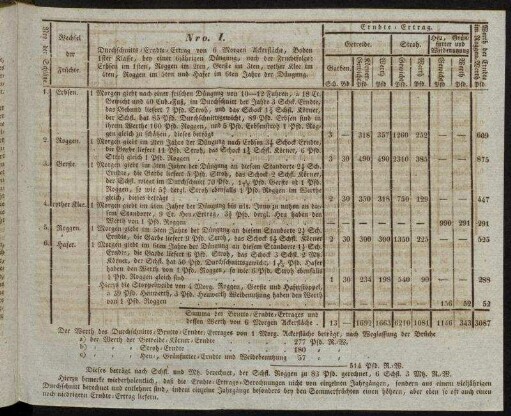 Wechsel der Früchte.
Nro. I.
Erndte-Ertrag.
Durchschnitts-Erndte-Ertrag von 6 Morgen Ackerfläche, Boden
1ster Klasse, bei einer 6jährigen Düngung, nach der Fruchtfolge:
Erbsen im 1sten, Roggen im 2ten, Gerste im 3ten, rother Klee im
4ten, Roggen im 5ten und Hafer im 6ten Jahre der Düngung.
Getreide. Stroh.
Garben. Gewicht Werth Gewicht Werth Gewicht Werth
Sch. Bd Pfd Pfd Pfd Pfd Pfd Pfd Pfd
1. Erbsen. 1 Morgen giebt nach einer frischen Düngung von 10—12 Fuhren, à 18 Ct.
Gewicht und 40 Cub.Fuß, im Durchschnitt der Jahre 3 Schck. Erndte,
das Gebund liefert 7 Pfd. Stroh, und das Schock 1¼ Schfl. Körner,
der Schfl. hat 85 Pfd. Durchschnittsgewicht, 89 Pfd. Erbsen sind in
ihrem Werthe 100 Pfd. Roggen, und 5 Pfd. Erbsenstroh 1 Pfd. Rog-
gen gleich zu schätzen, dieses beträgt 3 — 318 357 1260 252 609
2. Roggen. 1 Morgen giebt im 2ten Jahre der Düngung nach Erbsen 3½ Schock Erndte,
die Garbe liefert 11 Pfd. Stroh, das Schock 1¾ Schfl. Körner, 6 Pfd.
Stroh gleich 1 Pfd. Roggen 3 30 490 490 2310 385 875
3. Gerste. 1 Morgen giebt im 3ten Jahre der Düngung an diesem Standorte 2½ Sch.
Erndte, die Garbe liefert 5 Pfd. Stroh, das Schock 2 Schfl. Körner,
Roggen, so wie 5⅘ dergl. Stroh ebenfalls 1 Pfd. Roggen im Werthe
gleich, dieses beträgt 2 30 350 318 750 129 447
4. rother Klee. 1 Morgen giebt im 4ten Jahre der Düngung bis ult. Juny zu nutzen an die-
sem Standorte, 9 Ctr. Heu-Ertrag, 3⅖ Pfd. dergl. Heu haben den
Werth von 1 Pfd. Roggen — — — — — — 990 291 291
5. Roggen. 1 Morgen giebt im 5ten Jahre der Düngung an diesem Standorte 2½ Sch.
Erndte, die Garbe liefert 9 Pfd. Stroh, das Schock 1½ Schfl. Körner 2 30 300 300 1350 225 525
6. Hafer. 1 Morgen giebt im 6ten Jahre der Düngung an diesem Standorte 1½ Sch.
Erndte, die Garbe liefert 6 Pfd. Stroh, das Schock 3 Schfl. 2 Mtz.
haben den Werth von 1 Pfd. Roggen, so wie 6 Pfd. Stroh ebenfalls
1 Pfd. Roggen gleich sind 1 30 234 198 540 90 288
Hierzu die Stoppelweide von 4 Morg. Roggen, Gerste und Haferstoppel,
à 39 Pfd. Heuwerth, 3 Pfd. Heuwerth Weidenutzung haben den Werth
von 1 Pfd. Roggen 156 52 52
Summa der Brutto-Erndte-Ertrages und
dessen Werth von 6 Morgen Ackerfläche. 13 — 1692 1663 6210 1081 1146 343 3087
Der Werth des Durchschnitts-Brutto-Erndte-Ertrages von 1 Morg. Ackerfläche beträgt, nach Weglassung der Brüche
a) der Werth der Getreide-Körner-Erndte 277 Pfd. R.-W.
b) Stroh-Erndte 180
c) Heu, Grünfutter-Erndte und Weidebenutzung 57
514 Pfd. R.-W.
Dieses beträgt nach Schfl. und Mtz. berechnet, der Schfl. Roggen zu 83 Pfd. gerechnet, 6 Schfl. 3 Mtz. R.-W.
Hierzu bemerke wiederholentlich, daß die Erndte-Ertrags-Berechnungen nicht von einzelnen Jahrgängen, sondern aus einem vieljährigen
Durchschnitt berechnet und entlehnt sind, indem einzelne Jahrgänge, besonders bey den Sommerfrüchten einen höhern, aber eben so oft auch einen
noch niedrigern Erndte-Ertrag liefern.